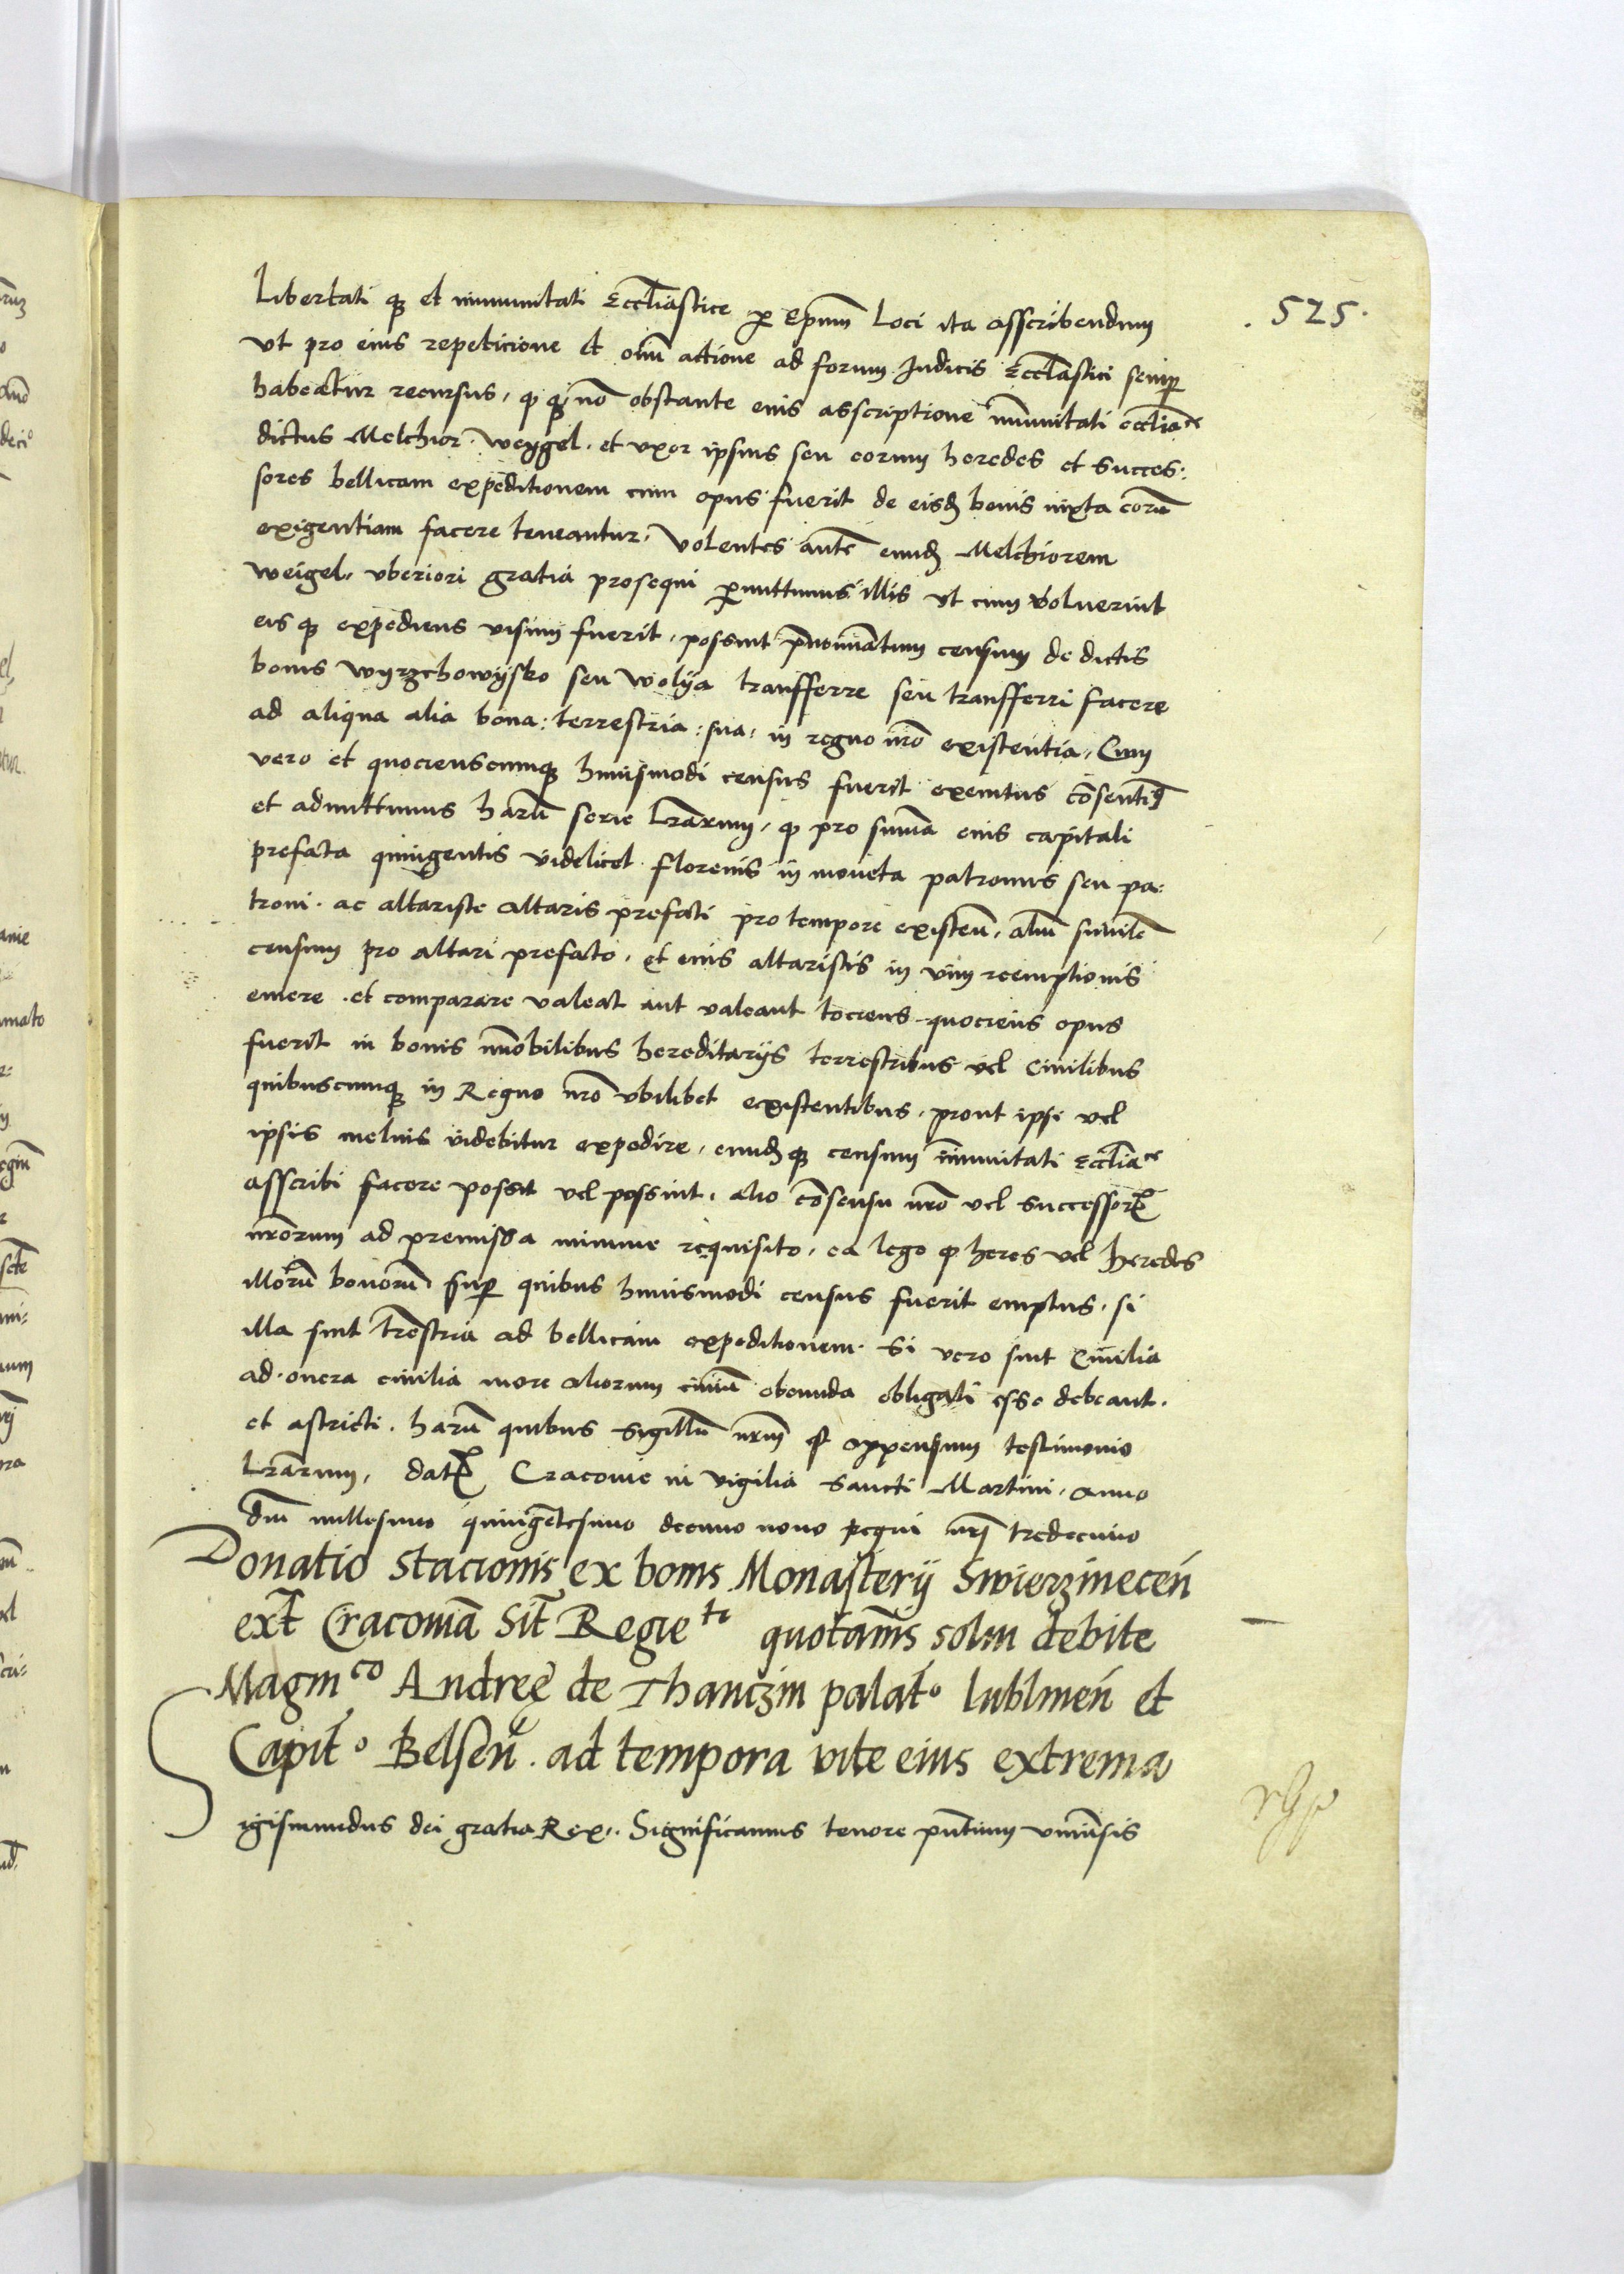 . 525 .
Libertati q3 et immunitati Eccliastice p Epum Loci ita asscribendum
vt pro eius repeticione et omi actione ad forum Iudicis Ecclastici semp
habeatur recursus, q q non obstante eius asscriptione immunitati eccliace
dictus Melchior . weygel . et vxor ipsius seu eorum heredes et succes:
sores bellicam expeditionem cum opus fuerit de eisd bonis iuxta eoru
exigentiam facere teneantur, Volentes aute eund Melchiorem
weigel, vberiori gratia prosequi pmittimus illis vt cum voluerint
eis q3 expediens visum fuerit, possint pnominatum censum de dictis
bonis wyrzchowysko seu wolya transfferre seu transfferri facere
ad aliqua alia bona: terrestria: sua, in regno nro existentia, Cum
vero et quocienscumq3 huiusmodi census fuerit exemtus cosentim9
et admittimus haru serie Lrarum, q pro suma eius capitali
prefata quingentis videlicet florenis in moneta patronus seu pa:
troni . ac altariste altaris prefati pro tempore existen, aliu simile
censum pro altari prefato, et eius altaristis in vim reemptionis
emere . et comparare valeat aut valeant tociens quociens opus
fuerit in bonis imobilibus hereditarijs terrestribus vel ciuilibus
quibuscumq3 in Regno nro vbilibet existentibus, prout ipsi vel
ipsis melius videbitur expedire, eundq3 censum immunitati Eccliace
asscribi facere possit vel possint, alio cosensu nro vel successor
nrorum ad premissa minime requisito, ea lege q heres vel heredes
illoru bonoru sup quibus huiusmodi census fuerit emptus, si
illa sint trestria ad bellicam expeditionem . Si vero sint Ciuilia
ad . onera ciuilia more aliorum ciuiu obeunda obligati esse debeant .
et astricti . haru quibus Sigillu nrum est appensum testimonio
Lrarum, dat Cracouie in vigilia Sancti Martini, anno
dni millesimo quingetesimo decimo nono regni nri tredecimo
Donatio stacionis ex bonis Monasterij Swierzinecen
ext Cracouia Sit Regie te quotanis solui debite
Magnico Andreę de Thanczin palato lublinen et
Capito Belsen . ad tempora vite eius extrema
Sigismundus dei gratia Rex, Significamus tenore pntium vniuersis